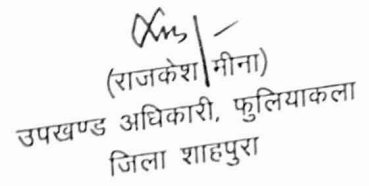 (राजकेश मीना)
उपखण्ड अधिकारी, फुलियाकला
जिला शाहपुरा